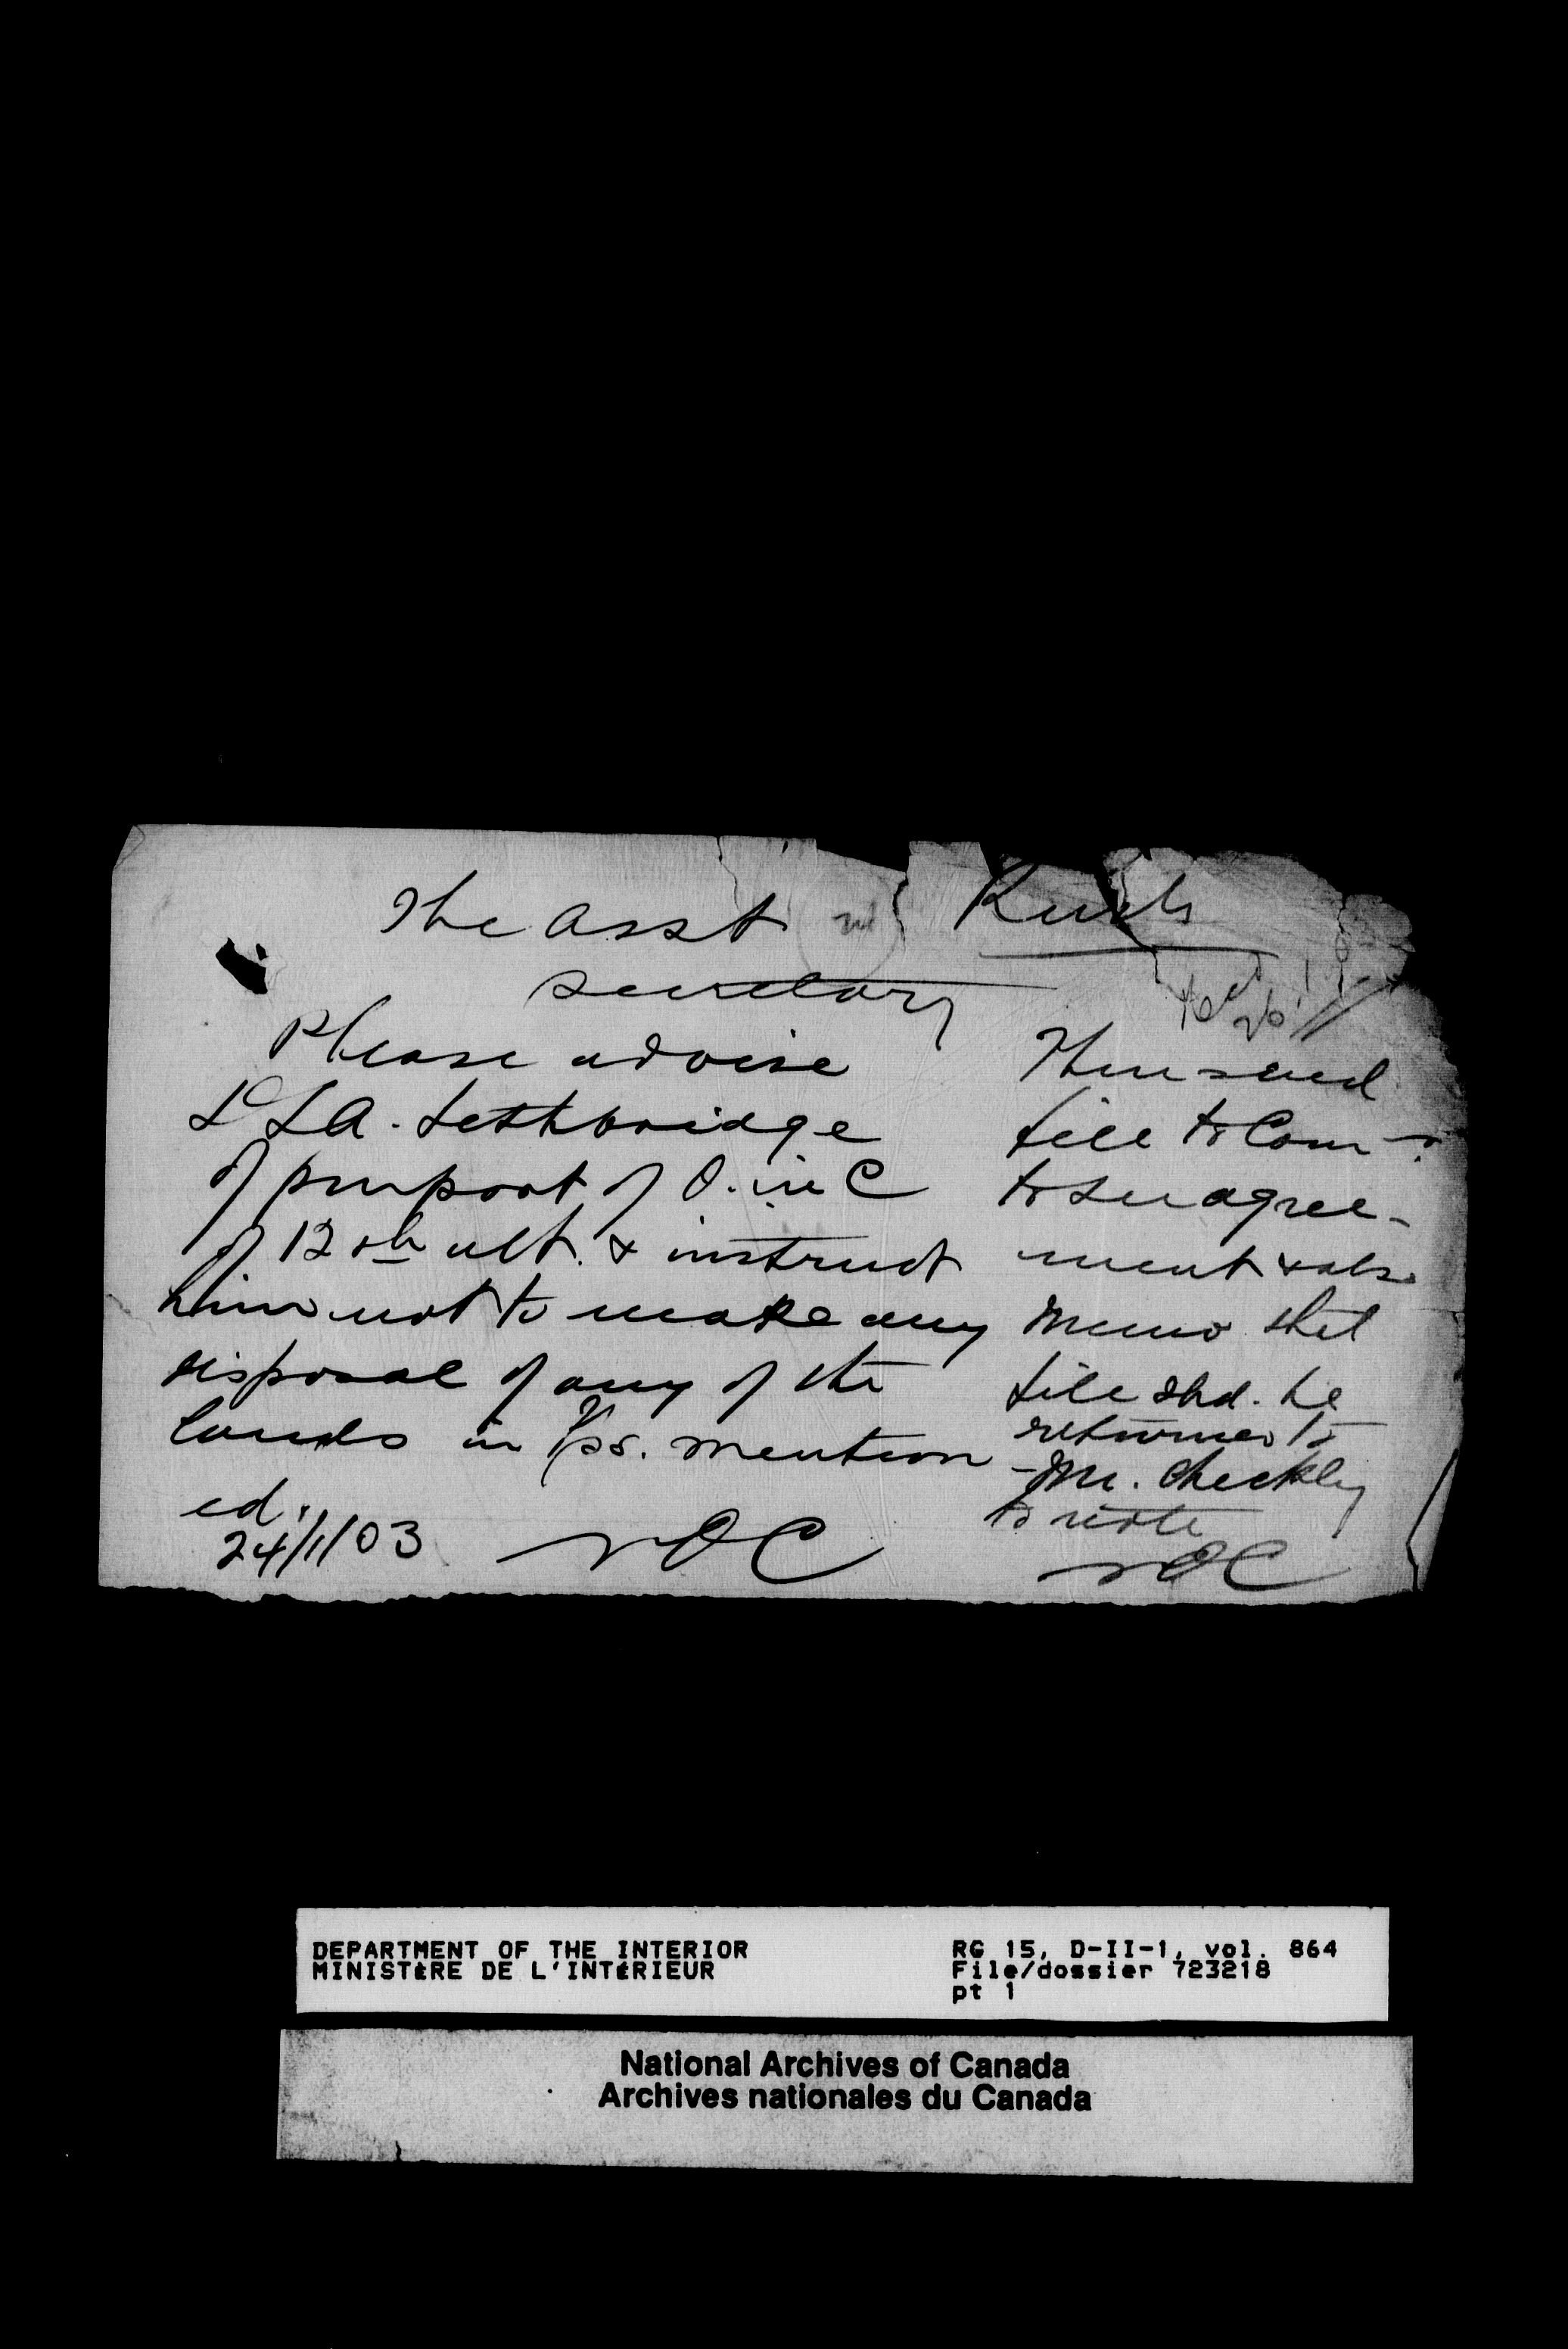 The Asst
Secretary
Please advise
D L A. Lethbridge
of purport of O. in C
of 12th ult. & instruct
him not to make any
disposal of any of the
lands in Tps. mention
ed.
24/1/03 NOC
Then send
file to Com-r
to see agree-
ment & also
memo that
file shd. be
returned to
Mr. Checkley
to note
NOC
DEPARTMENT OF THE INTERIOR
MINISTÈRE DE L'INTÉRIEUR
RG 15, D-II-1, vol. 864
File/dossier 723218
pt 1
National Archives of Canada
Archives nationales du Canada